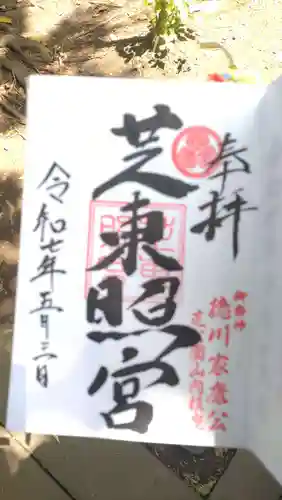 奉拝
御祭神
徳川家康公
芝東照宮
令和七年五月三日